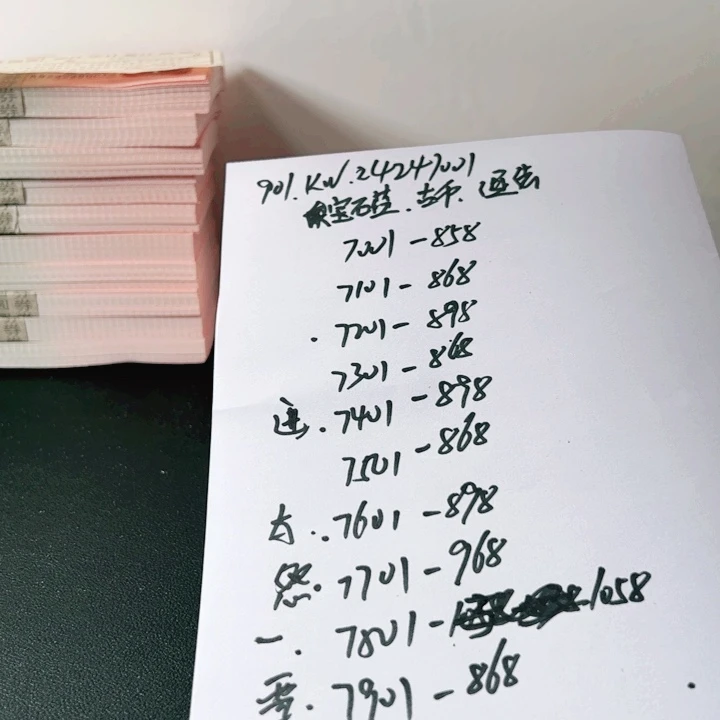 901.KW.24247001
宝石蓝.古币.
7001-858
7101-868
.7201-898
7301-868
.7401-898
7501-868
..7601-898
7701-968
一.7801-1058
要.7901-868